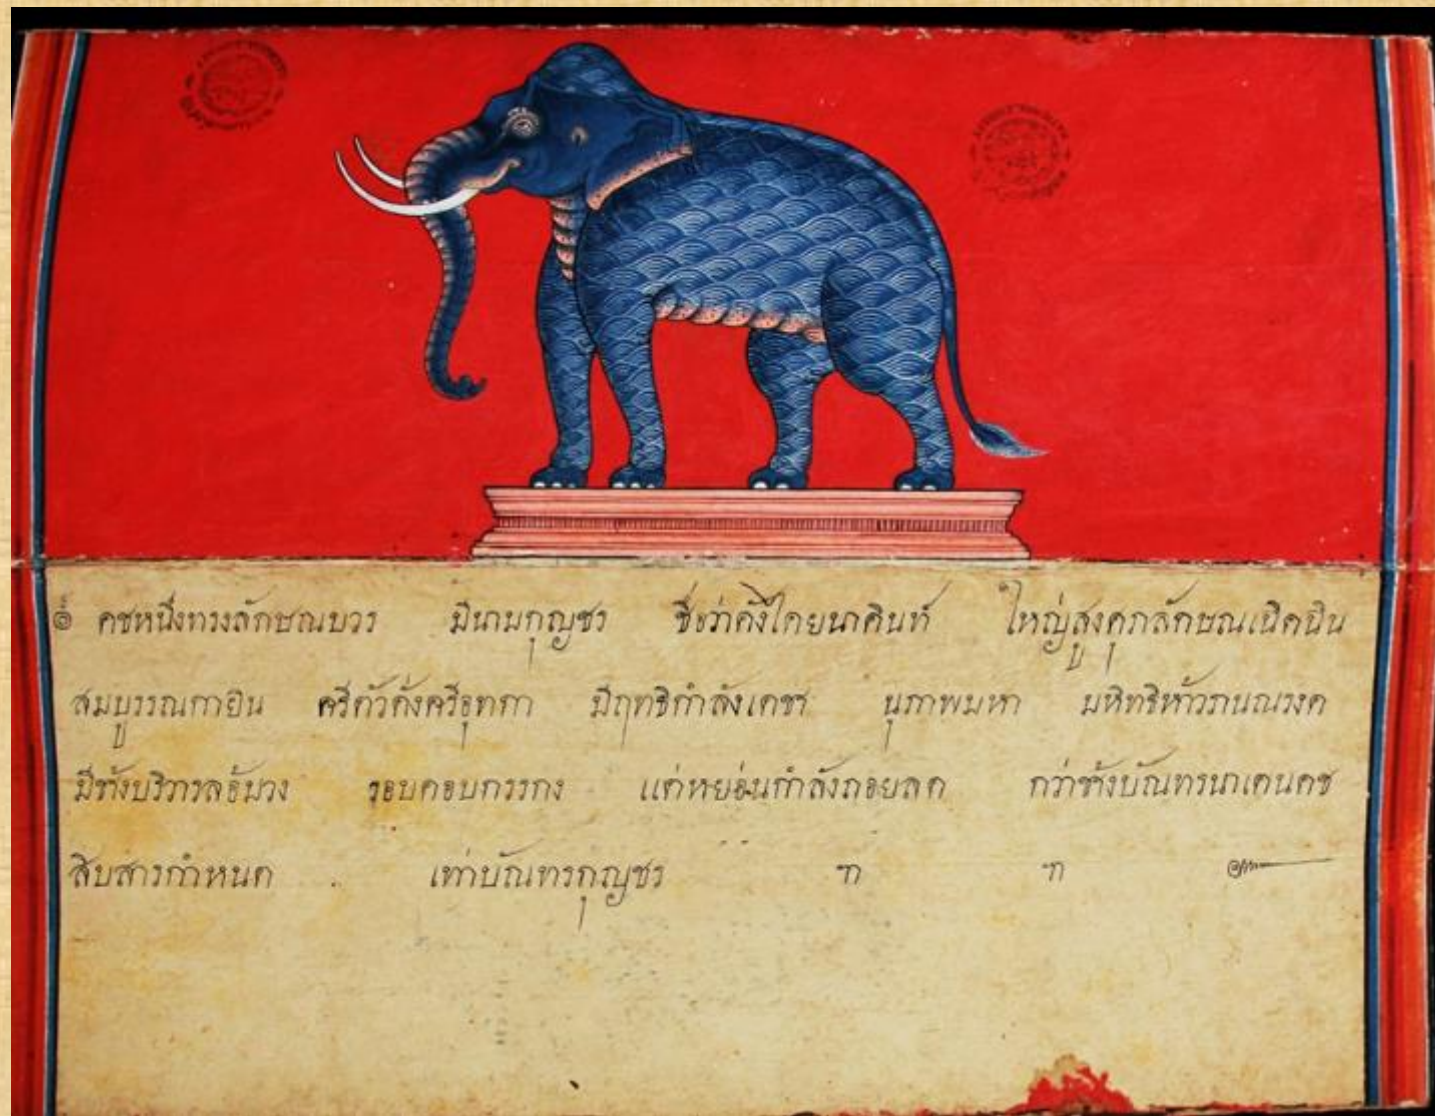 ๏ คชหนึ่งทรงลักษณบวร มีนามกุญชร ชื่อว่าคังไคยนาคินท์ ใหญ่สูงศุภลักษณเฉิดฉิน
สมบูรรณกายิน ศรีตัวดั่งศรีอุทกา มีฤทธิกำลังเดชา นุภาพมหา มหิทธิห้าวกนณรงค
มีช้างบริวารล้อมวง รอบคอบกรรกง แต่หย่อนกำลังถอยลด กว่าช้างบัณทรนาเคนคช
สิบสารกำหนด เท่าบัณทรกุญชร ฯ ฯ